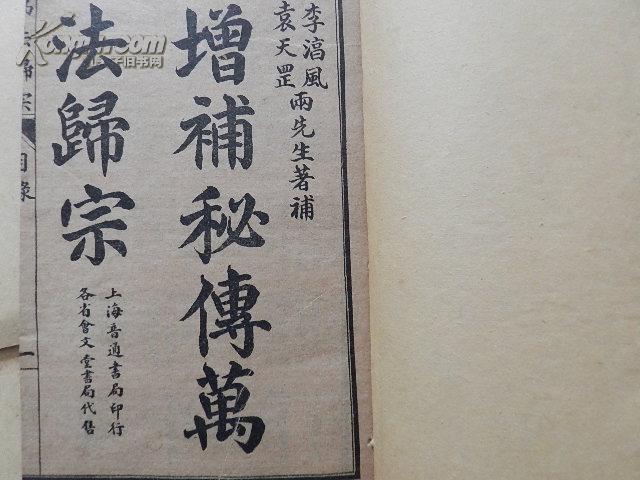 李淳風
袁天罡
兩先生著補
增補秘傳萬
法歸宗
上海普通書局印行
各省會文堂書局代售
歸宗
目錄
一